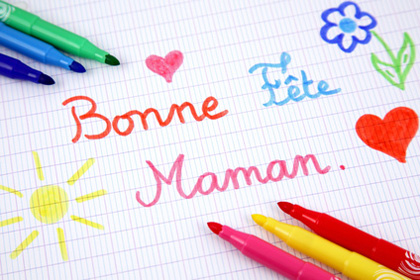 Bonne Fête
Maman.